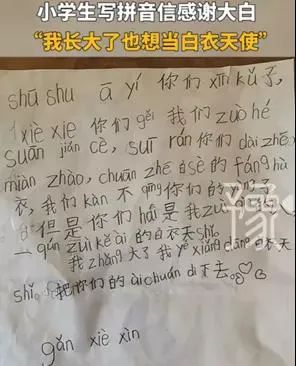 小学生写拼音信感谢大白
“我长大了也想当白衣天使”
shū shu ā yí 你们 xīn kǔ 了,
xiè xie 你们 gěi 我们 zuò hé
suān jiǎn cè, suī rán 你们 dài zhe
miàn zhào, chuān zhe 白 sè 的 fáng hù
衣, 我们 kàn 不 qīng 你们的
但是你们 hái 是我 zuì
zuì kě ài 的白衣天 shǐ.
我 zhǎng 大了我 yě xiǎng dāng 白衣天
shǐ. 把你们的 ài chuán dì 下去。
gǎn xiè xìn
豫